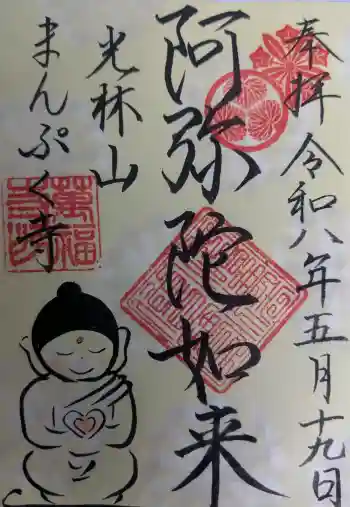 奉拝 令和八年五月十九日
阿弥陀如来
光林山
まんぷく寺
萬福